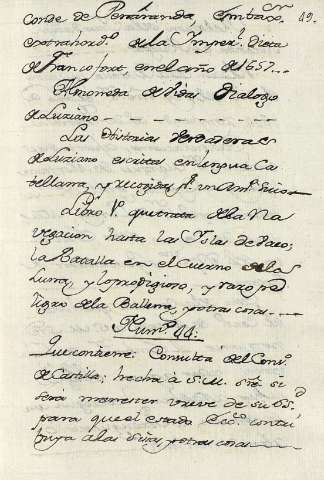 49.
conde de Peñaranda Embaxor
extrahordo. de la Imperl. Dieta
de Francofort, en el año de 1657...
Almoneda de Vidas Dialogo
de Luziano
Las Historias Verdaderas
de Luziano escritas en lengua Cas
tellana, y recogidas pr. un Antiguo
Libro 1o. que trata de la Na
vegacion hasta las Islas de Baco;
la Batalla en el Cuerno de la
Luna, y lo prodigioso, y raro pe
ligro de la Ballena, y otras cosas
Numo. 44.
Que contiene: Consulta del Conso.
de Castilla; hecha a S.M. sre. si
sera menester breve de su Sd.
para que el estado Ecco. contri
buya a las Sisas, y otras cosas